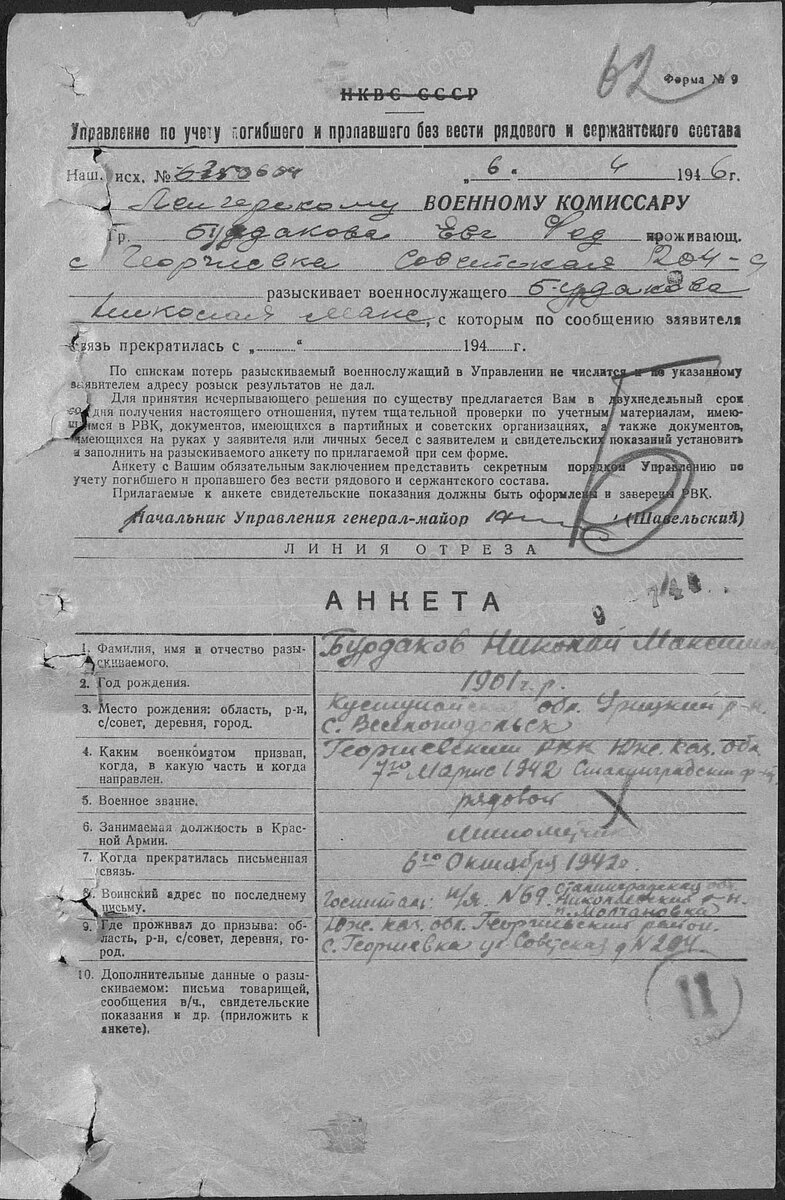 62
Форма № 9
НКВС СССР
Управление по учету погибшего и пропавшего без вести рядового и сержантского состава
Наш. исх. № „6“ 4 1946 г.
Ленгерскому ВОЕННОМУ КОМИССАРУ
Гр. Бурдакова Евг Фед проживающ.
с Георгиевка Советская 204
разыскивает военнослужащего Бурдакова
Николая Макс, с которым по сообщению заявителя
связь прекратилась с „ “ 194 г.
По спискам потерь разыскиваемый военнослужащий в Управлении не числится и по указанному
заявителем адресу розыск результатов не дал.
Для принятия исчерпывающего решения по существу предлагается Вам в двухнедельный срок
со дня получения настоящего отношения, путем тщательной проверки по учетным материалам, имею-
щимся в РВК, документов, имеющихся в партийных и советских организациях, а также документов,
имеющихся на руках у заявителя или личных бесед с заявителем и свидетельских показаний установить
и заполнить на разыскиваемого анкету по прилагаемой при сем форме.
Анкету с Вашим обязательным заключением представить секретным порядком Управлению по
учету погибшего и пропавшего без вести рядового и сержантского состава.
Прилагаемые к анкете свидетельские показания должны быть оформлены и заверены РВК.
Начальник Управления генерал-майор (Шавельский)
ЛИНИЯ ОТРЕЗА
АНКЕТА
1. Фамилия, имя и отчество разы-
скиваемого.
Бурдаков Николай Максимо
2. Год рождения.
1901 г.р.
3. Место рождения: область, р-н,
с/совет, деревня, город.
обл. Урицкий р-н.
4. Каким военкоматом призван,
когда, в какую часть и когда
направлен.
Георгиевским РВК Юж. Каз. обл
7го Марта 1942
5. Военное звание.
рядовой
6. Занимаемая должность в Крас-
ной Армии.
7. Когда прекратилась письменная
связь.
6го Октября 1942г.
8. Воинский адрес по последнему
письму.
Госпиталь: п/я. N69 Сталинградская обл.
Николаевский р-н.
п. Молчановка
9. Где проживал до призыва: об-
ласть, р-н, с/совет, деревня, го-
род.
Юж. каз. обл. Георгиевский район.
с. Георгиевка ул Советская д N204.
10. Дополнительные данные о разы-
скиваемом: письма товарищей,
сообщения в/ч., свидетельские
показания и др. (приложить к
анкете).
11